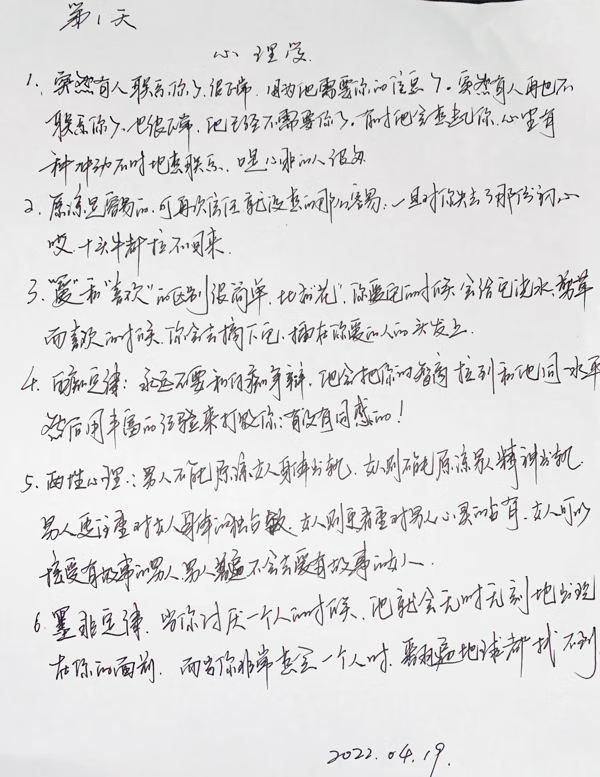 第1天
心理学
1. 突然有人联系你了,很正常,因为他需要你的信息了。突然有人再也不
联系你了,也很正常,他已经不需要你了。有时他会想起你,心里有
种冲动不时地想联系,口是心非的人很多
2. 原谅是容易的,可再次信任就没想的那么容易;一旦对你失去了那份初心
哎 十头牛都拉不回来.
3. "爱"和"喜欢"的区别很简单,比如"花",你爱它的时候会给它浇水,剪草
而喜欢的时候,你会去摘下它,插在你爱的人的头发上.
4. 白痴定律:永远不要和白痴争辩,他会把你的智商拉到和他同一水平
然后用丰富的经验来打败你;有没有同感的!
5. 两性心理:男人不能原谅女人身体出轨,女人则不能原谅男人精神出轨.
男人更注重对女人身体的独占欲,女人则更看重对男人心灵的占有,女人可以
接受有故事的男人,男人普遍不会去要有故事的女人.
6. 墨菲定律,当你讨厌一个人的时候,他就会无时无刻地出现
在你的面前,而当你非常想念一个人时,要翻遍地球都找不到
2022.04.19.